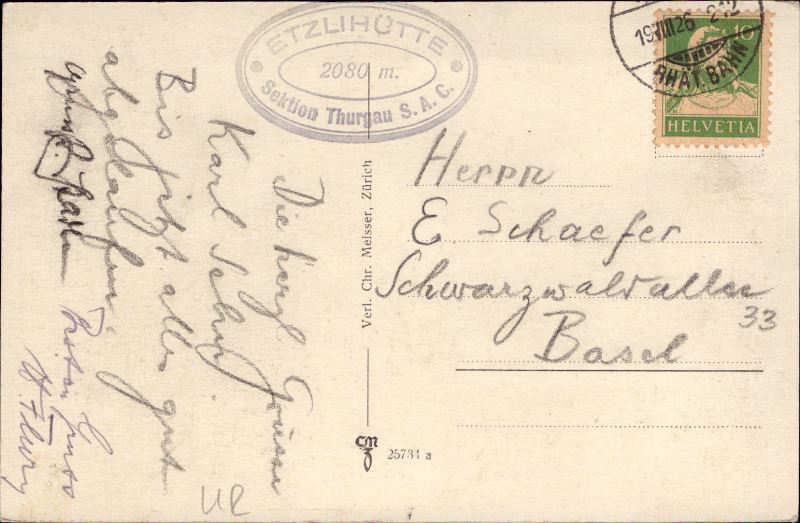 ETZLIHÜTTE
2080 m.
Sektion Thurgau S. A. C.
19.VIII.26 212
RHÄT. BAHN
10
HELVETIA
Herrn
E. Schaefer
Schwarzwaldallee
33
Basel
Verl. Chr. Meisser, Zürich
25734 a
Die herzl. Grüsse
Karl
Bis jetzt alles gut
abgelaufen.
UR